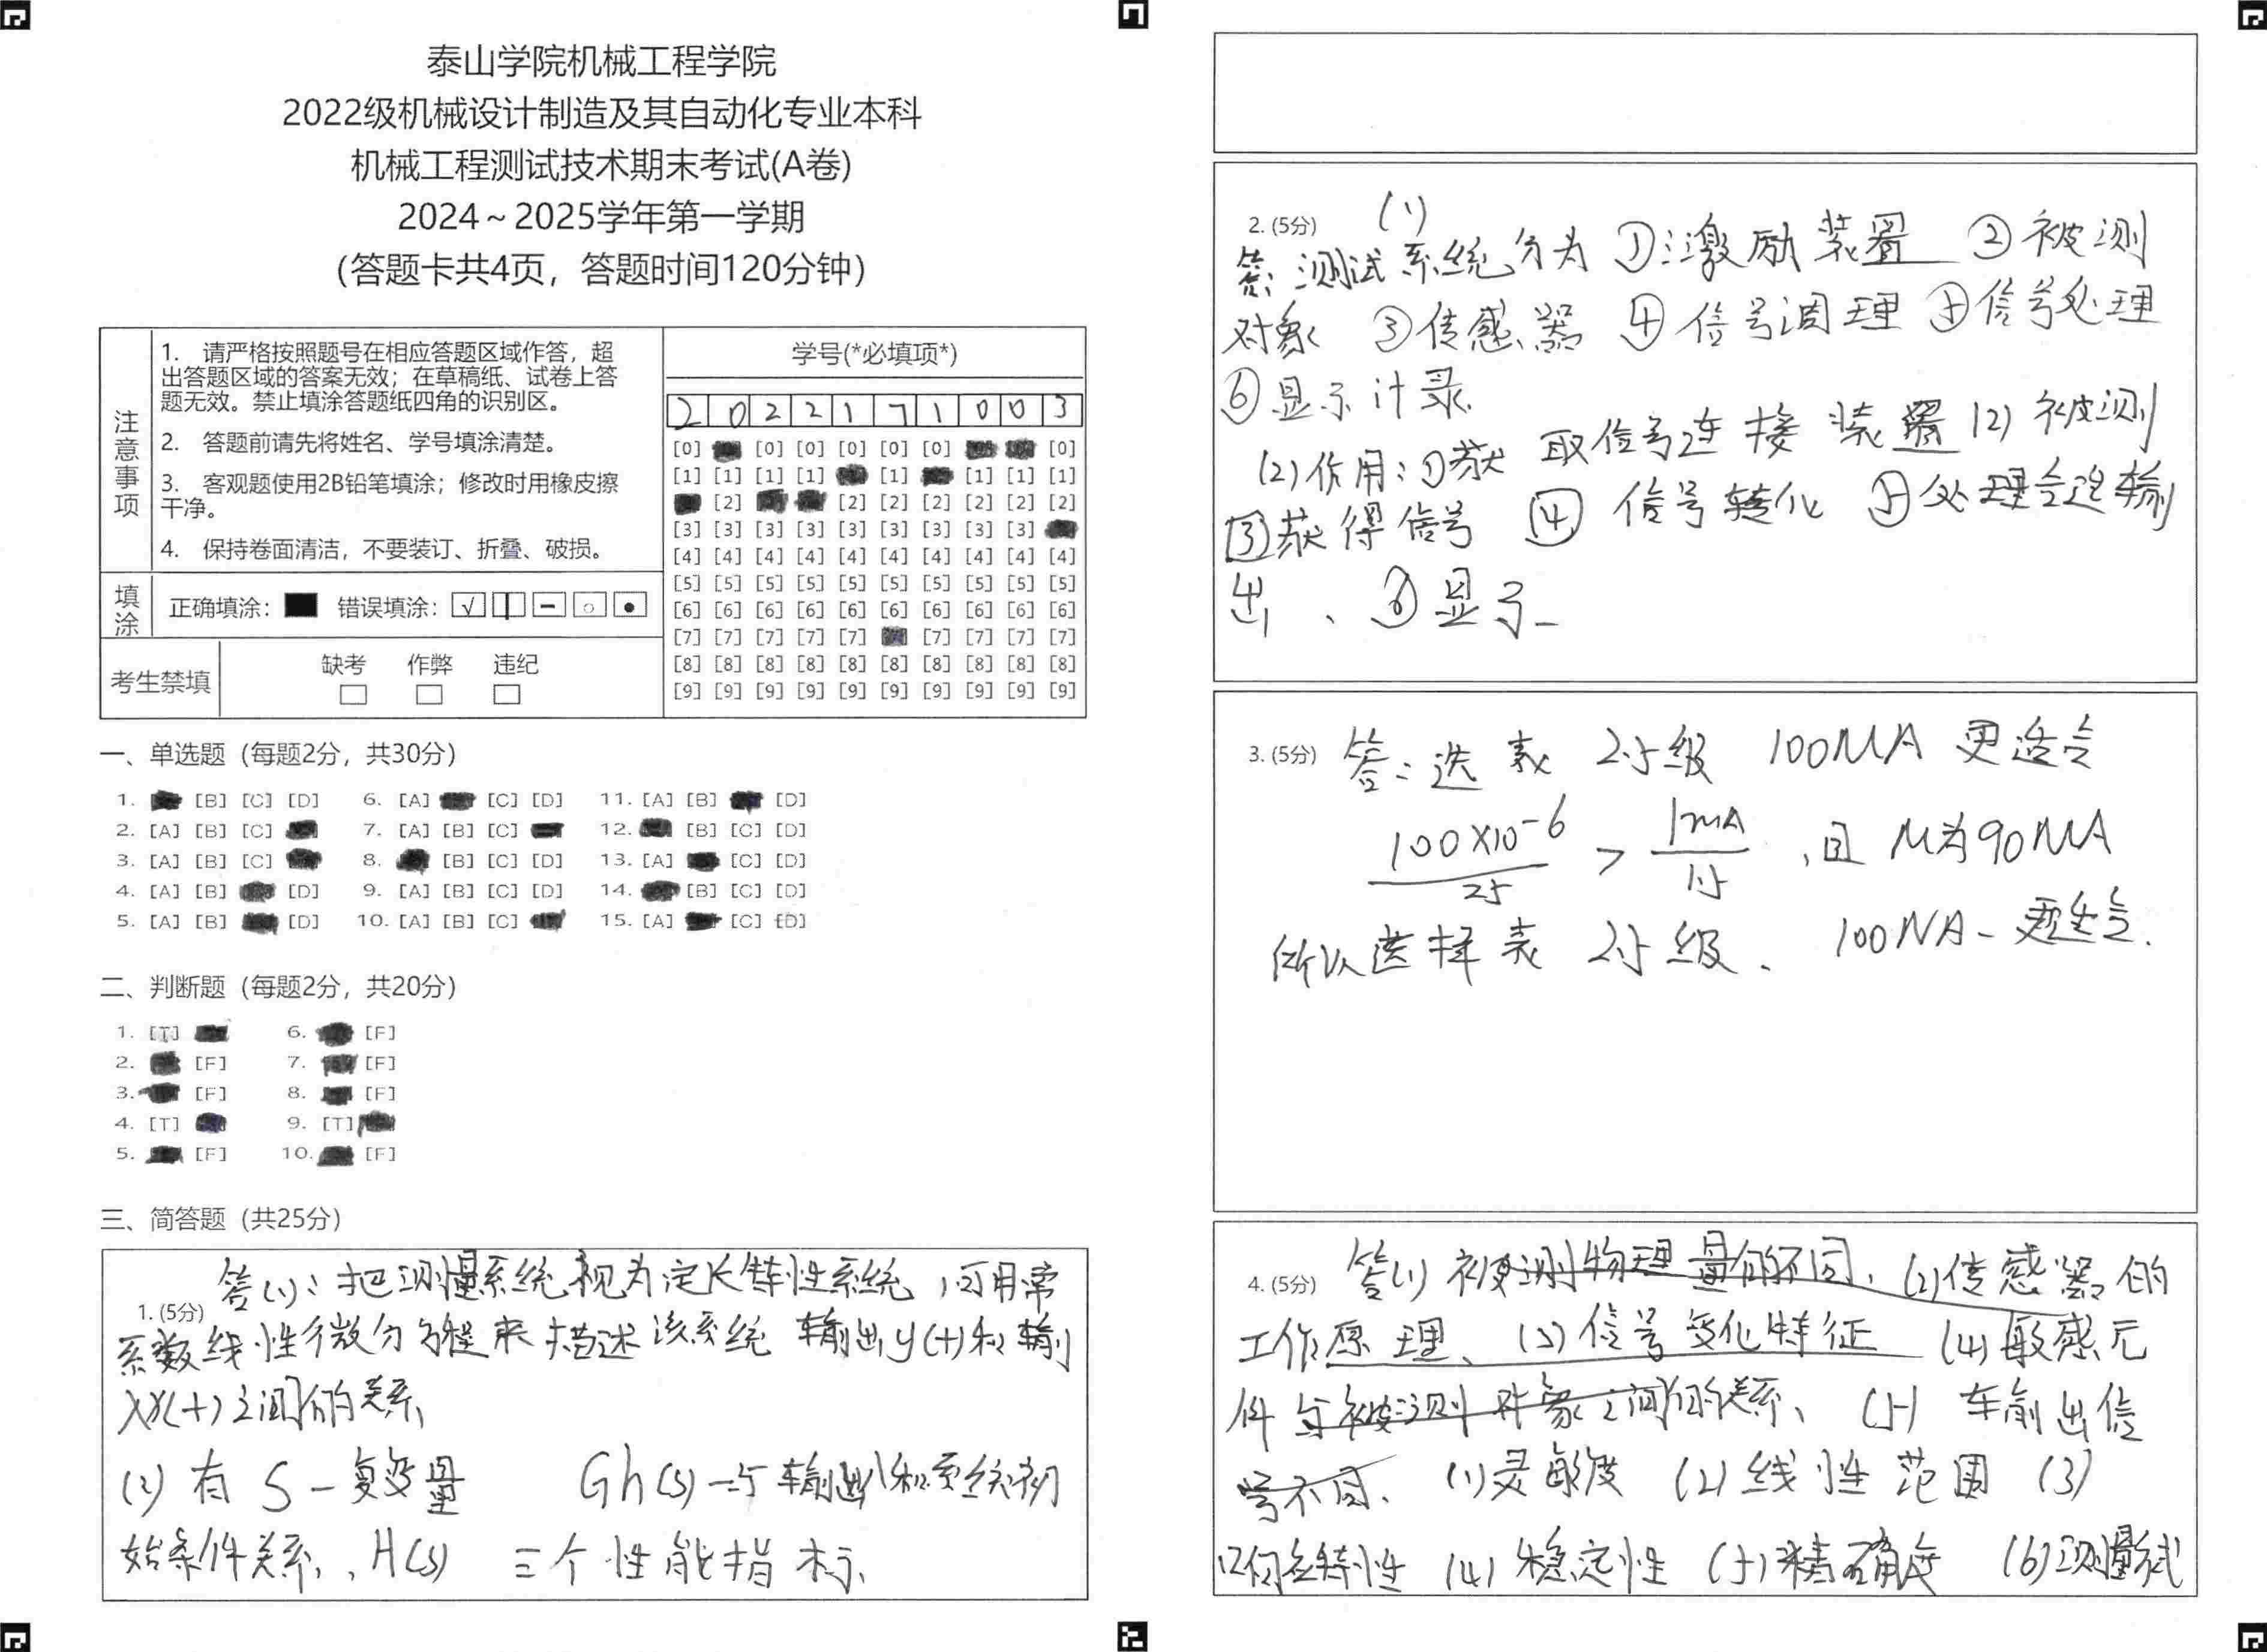 泰山学院机械工程学院
2022级机械设计制造及其自动化专业本科
机械工程测试技术期末考试(A卷)
2024～2025学年第一学期
(答题卡共4页，答题时间120分钟)
注意事项
1. 请严格按照题号在相应答题区域作答，超
出答题区域的答案无效；在草稿纸、试卷上答
题无效。禁止填涂答题纸四角的识别区。
2. 答题前请先将姓名、学号填涂清楚。
3. 客观题使用2B铅笔填涂；修改时用橡皮擦
干净。
4. 保持卷面清洁，不要装订、折叠、破损。
填涂 正确填涂： 错误填涂：
考生禁填 缺考 作弊 违纪
学号(*必填项*)
2 0 2 2 1 7 1 0 0 3
[0] [0] [0] [0] [0] [0] [0]
[1] [1] [1] [1] [1] [1] [1] [1]
[2] [2] [2] [2] [2] [2] [2]
[3] [3] [3] [3] [3] [3] [3] [3] [3]
[4] [4] [4] [4] [4] [4] [4] [4] [4] [4]
[5] [5] [5] [5] [5] [5] [5] [5] [5] [5]
[6] [6] [6] [6] [6] [6] [6] [6] [6] [6]
[7] [7] [7] [7] [7] [7] [7] [7] [7]
[8] [8] [8] [8] [8] [8] [8] [8] [8] [8]
[9] [9] [9] [9] [9] [9] [9] [9] [9] [9]
一、单选题（每题2分，共30分）
1. [B] [C] [D] 6. [A] [C] [D] 11. [A] [B] [D]
2. [A] [B] [C] 7. [A] [B] [C] 12. [B] [C] [D]
3. [A] [B] [C] 8. [B] [C] [D] 13. [A] [C] [D]
4. [A] [B] [D] 9. [A] [B] [C] [D] 14. [B] [C] [D]
5. [A] [B] [D] 10. [A] [B] [C] 15. [A] [C] [D]
二、判断题（每题2分，共20分）
1. [T] 6. [F]
2. [F] 7. [F]
3. [F] 8. [F]
4. [T] 9. [T]
5. [F] 10. [F]
三、简答题（共25分）
1. (5分) 答(1)：把测量系统视为定长特性系统，可用常
系数线性微分方程来描述该系统 输出y(t)和输
入x(t)之间的关系、
(2) 有 S－复变量 Gh(s)－与输出入和系统初
始条件关系、、H(s) 三个性能指标、
2. (5分) (1)
答：测试系统分为 ①激励装置 ②被测
对象 ③传感器 ④信号调理 ⑤信号处理
⑥显示计录、
(2)作用：①获取信号连接装置 (2) 被测
③获得信号 ④信号转化 ⑤处理 输
出、⑥显示
3. (5分) 答：选表 2.5级 100MA 更适合
100×10⁻⁶/25 > 1mA/1.5 ，且 M为90MA
所以选择表 2.5级、 100NA 更适合.
4. (5分) 答(1) 被测物理量的不同、(2)传感器的
工作原理、(3)信号变化特征 (4)敏感元
件与被测对象之间的关系、(5) 输出信
号不同、 (1)灵敏度 (2)线性范围 (3)
特性 (4) 稳定性 (5)精确度 (6)测量